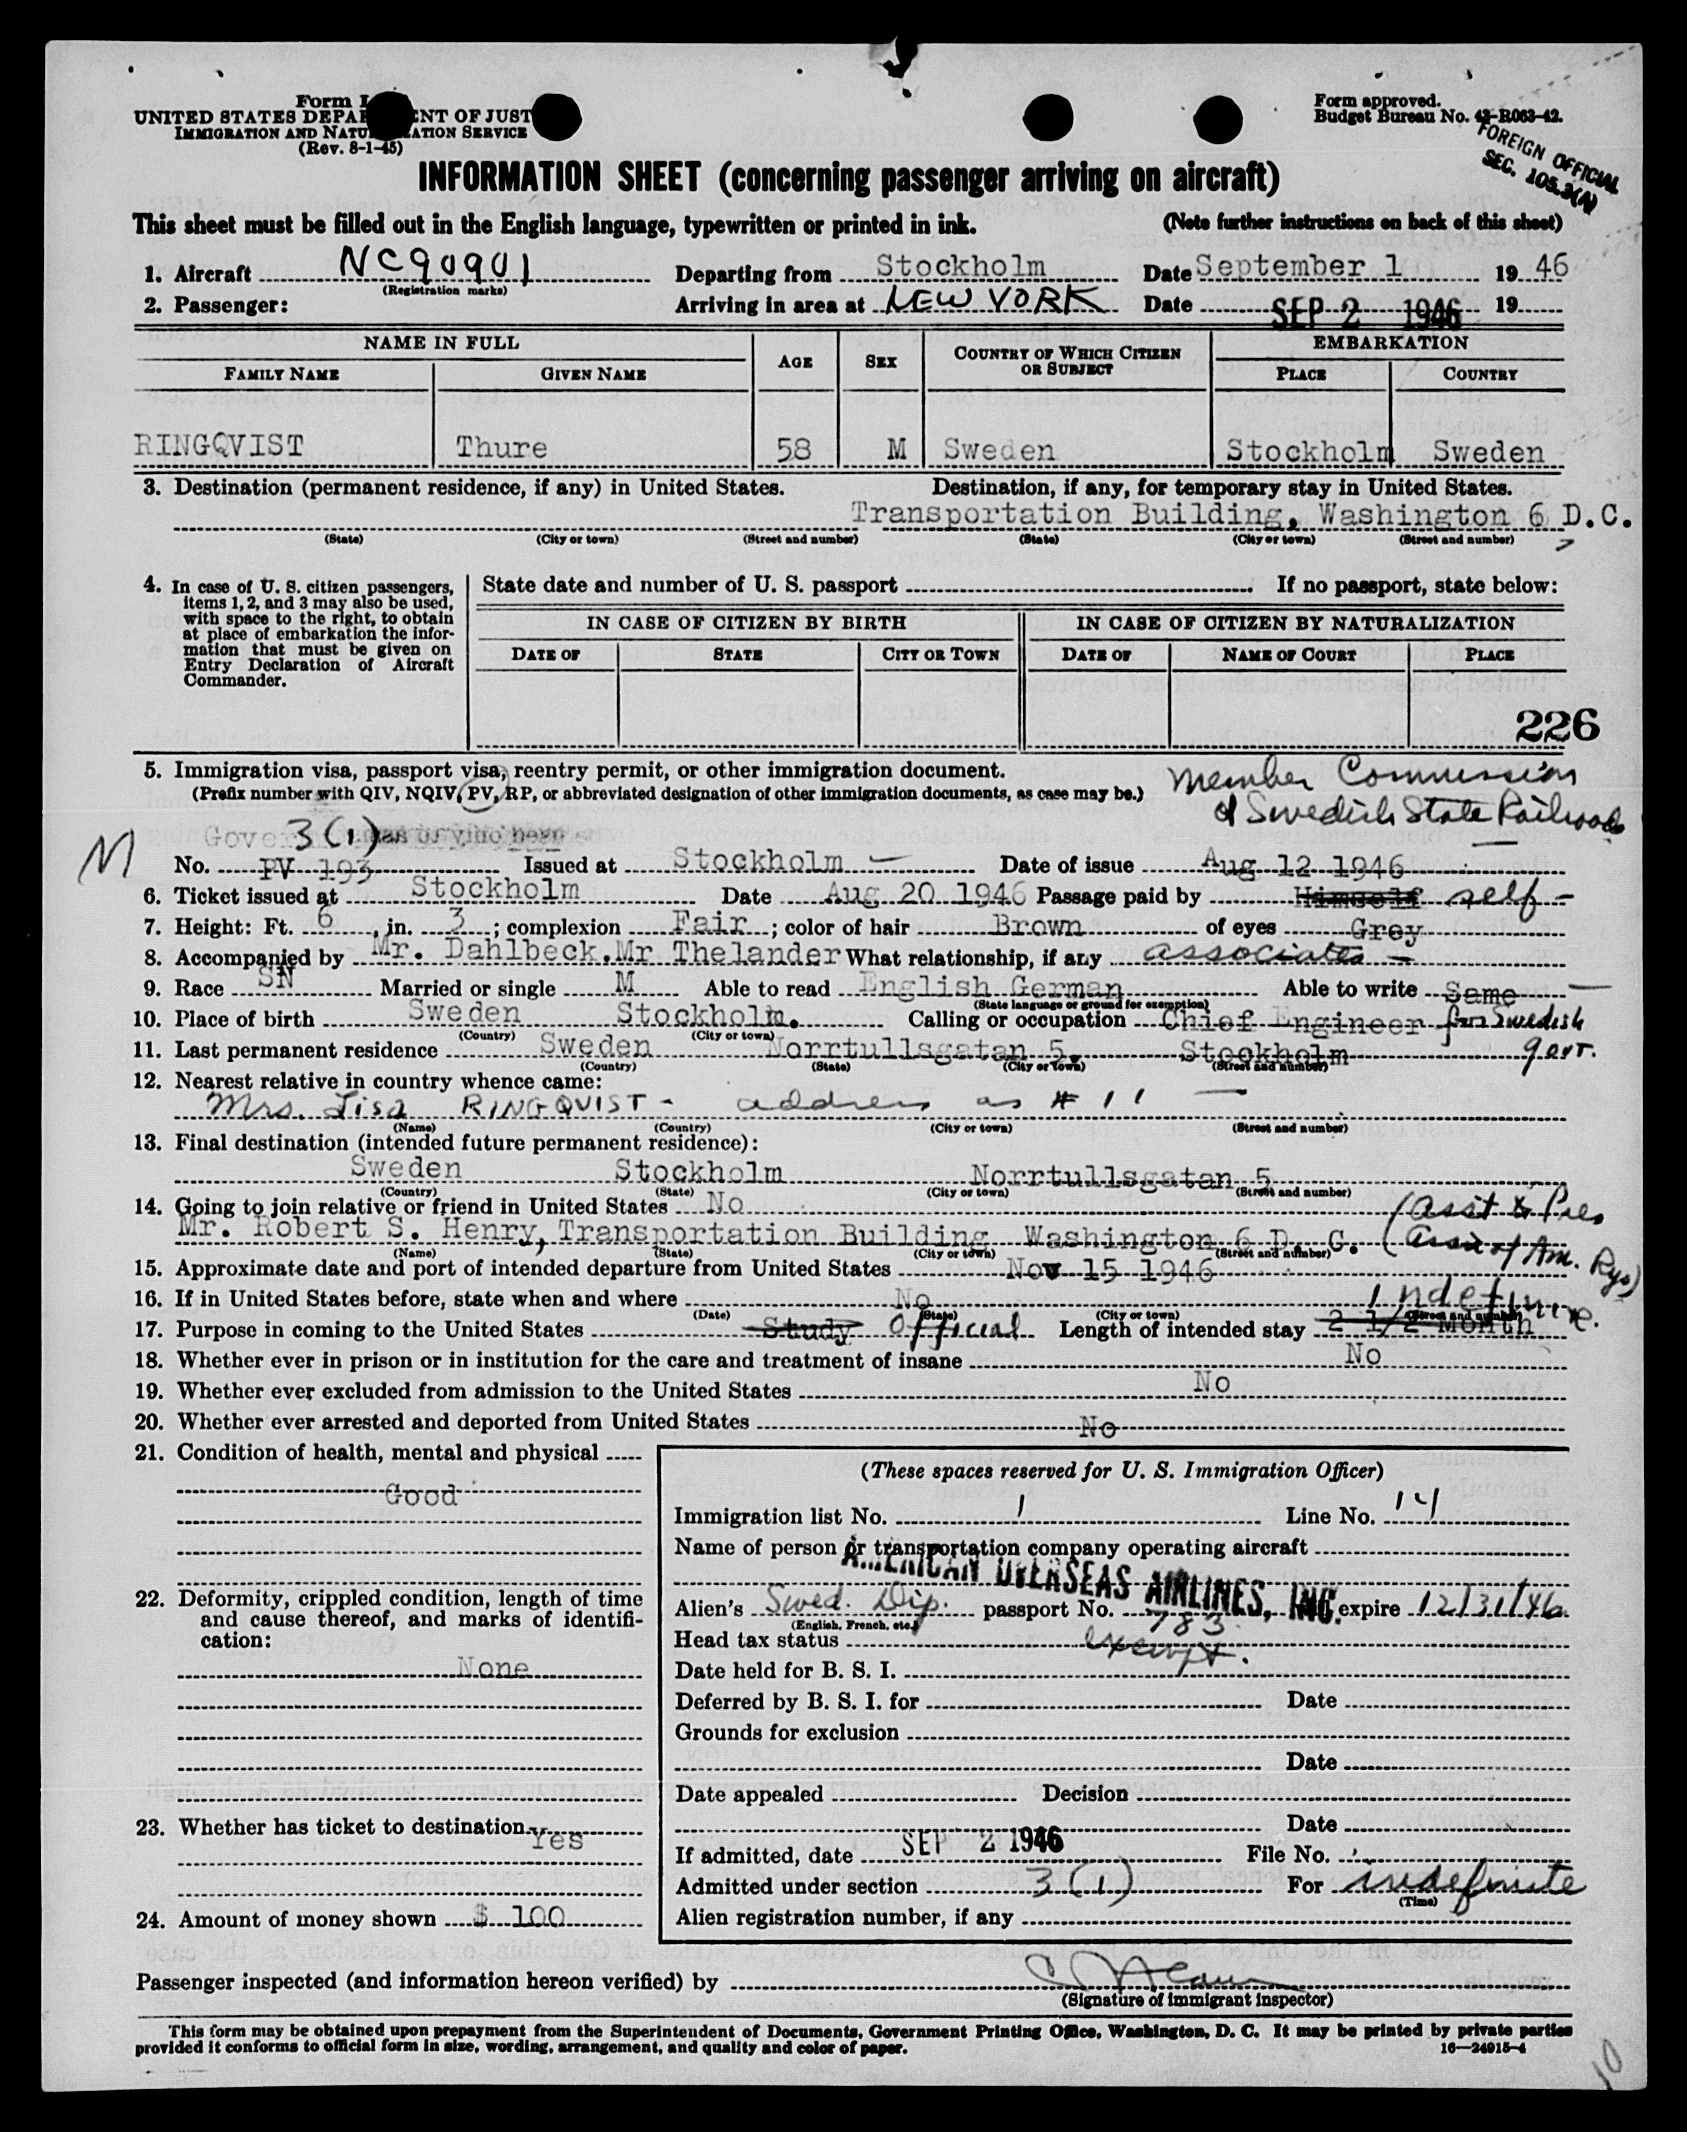 Form I
UNITED STATES DEPA NT OF JUST
IMMIGRATION AND NATU ATION SERVICE
(Rev. 8-1-45)
Form approved.
Budget Bureau No. 43-R063-42.
FOREIGN OFFICIAL
SEC. 105.3(A)
INFORMATION SHEET (concerning passenger arriving on aircraft)
This sheet must be filled out in the English language, typewritten or printed in ink. (Note further instructions on back of this sheet)
1. Aircraft NC90901 Departing from Stockholm Date September 1 19 46
(Registration marks)
2. Passenger: Arriving in area at NEW YORK Date SEP 2 1946 19
NAME IN FULL AGE SEX COUNTRY OF WHICH CITIZEN OR SUBJECT EMBARKATION
FAMILY NAME GIVEN NAME PLACE COUNTRY
RINGQVIST Thure 58 M Sweden Stockholm Sweden
3. Destination (permanent residence, if any) in United States. Destination, if any, for temporary stay in United States.
Transportation Building, Washington 6 D.C.
(State) (City or town) (Street and number) (State) (City or town) (Street and number)
4. In case of U. S. citizen passengers, items 1, 2, and 3 may also be used, with space to the right, to obtain at place of embarkation the information that must be given on Entry Declaration of Aircraft Commander.
State date and number of U. S. passport If no passport, state below:
IN CASE OF CITIZEN BY BIRTH IN CASE OF CITIZEN BY NATURALIZATION
DATE OF STATE CITY OR TOWN DATE OF NAME OF COURT PLACE
226
5. Immigration visa, passport visa, reentry permit, or other immigration document.
(Prefix number with QIV, NQIV, PV, RP, or abbreviated designation of other immigration documents, as case may be.)
Member Commission
of Swedish State Railroads
M
3(1)
No. PV 193 Issued at Stockholm Date of issue Aug 12 1946
6. Ticket issued at Stockholm Date Aug 20 1946 Passage paid by Himself self
7. Height: Ft. 6, in. 3; complexion Fair; color of hair Brown of eyes Grey
8. Accompanied by Mr. Dahlbeck.Mr Thelander What relationship, if any associates
9. Race SN Married or single M Able to read English German Able to write Same
(State language or ground for exemption)
10. Place of birth Sweden Stockholm. Calling or occupation Chief Engineer for Swedish
(Country) (City or town)
govt.
11. Last permanent residence Sweden Norrtullsgatan 5, Stockholm
(Country) (State) (City or town) (Street and number)
12. Nearest relative in country whence came:
Mrs. Lisa RINGQVIST - address as # 11
(Name) (Country) (City or town) (Street and number)
13. Final destination (intended future permanent residence):
Sweden Stockholm Norrtullsgatan 5
(Country) (State) (City or town) (Street and number)
14. Going to join relative or friend in United States No
Mr. Robert S. Henry, Transportation Building Washington 6 D. C. (Asst to Pres
Assn of Am. Rys)
(Name) (State) (City or town) (Street and number)
15. Approximate date and port of intended departure from United States Nov 15 1946
16. If in United States before, state when and where No
(Date) (State) (City or town) (Street and number)
17. Purpose in coming to the United States Study Official Length of intended stay 2 1/2 Month Indefinite.
18. Whether ever in prison or in institution for the care and treatment of insane No
19. Whether ever excluded from admission to the United States No
20. Whether ever arrested and deported from United States No
21. Condition of health, mental and physical
Good
22. Deformity, crippled condition, length of time and cause thereof, and marks of identification:
None
23. Whether has ticket to destination Yes
24. Amount of money shown $ 100
(These spaces reserved for U. S. Immigration Officer)
Immigration list No. 1 Line No. 14
Name of person or transportation company operating aircraft
AMERICAN OVERSEAS AIRLINES, INC.
Alien's Swed. Dip. passport No. 783 expire 12/31/46
(English, French, etc.)
Head tax status exempt.
Date held for B. S. I.
Deferred by B. S. I. for Date
Grounds for exclusion
Date
Date appealed Decision
Date
If admitted, date SEP 2 1946 File No.
Admitted under section 3(1) For indefinite
(Time)
Alien registration number, if any
Passenger inspected (and information hereon verified) by
(Signature of immigrant inspector)
This form may be obtained upon prepayment from the Superintendent of Documents, Government Printing Office, Washington, D. C. It may be printed by private parties
provided it conforms to official form in size, wording, arrangement, and quality and color of paper. 16—24915-4
10